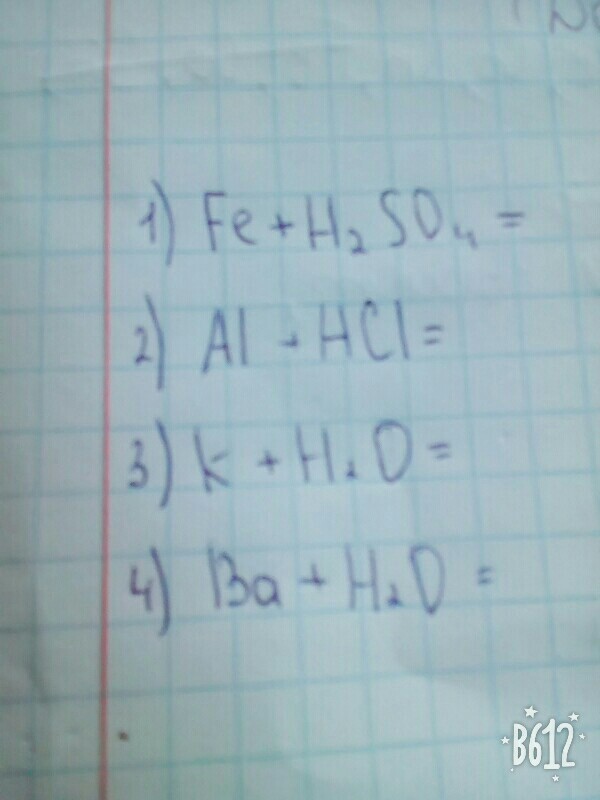 1) Fe + H₂SO₄ =
2) Al + HCl =
3) K + H₂O =
4) Ba + H₂O =
B612